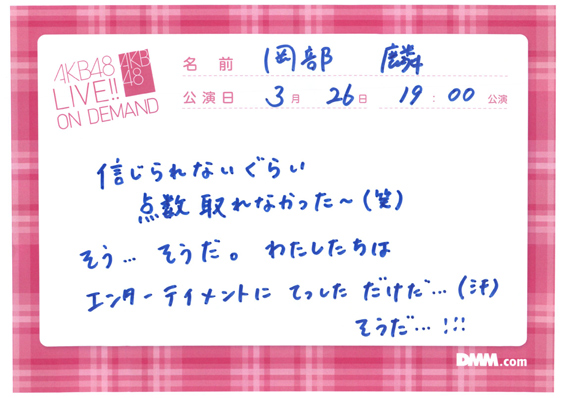 AKB48
LIVE!!
ON DEMAND
AKB
48
名前 岡部 麟
公演日 3月 26日 19:00 公演
信じられないぐらい
点数取れなかった〜(笑)
そう…そうだ。わたしたちは
エンターテイメントにてっしただけだ…(汗)
そうだ…!!!
DMM.com